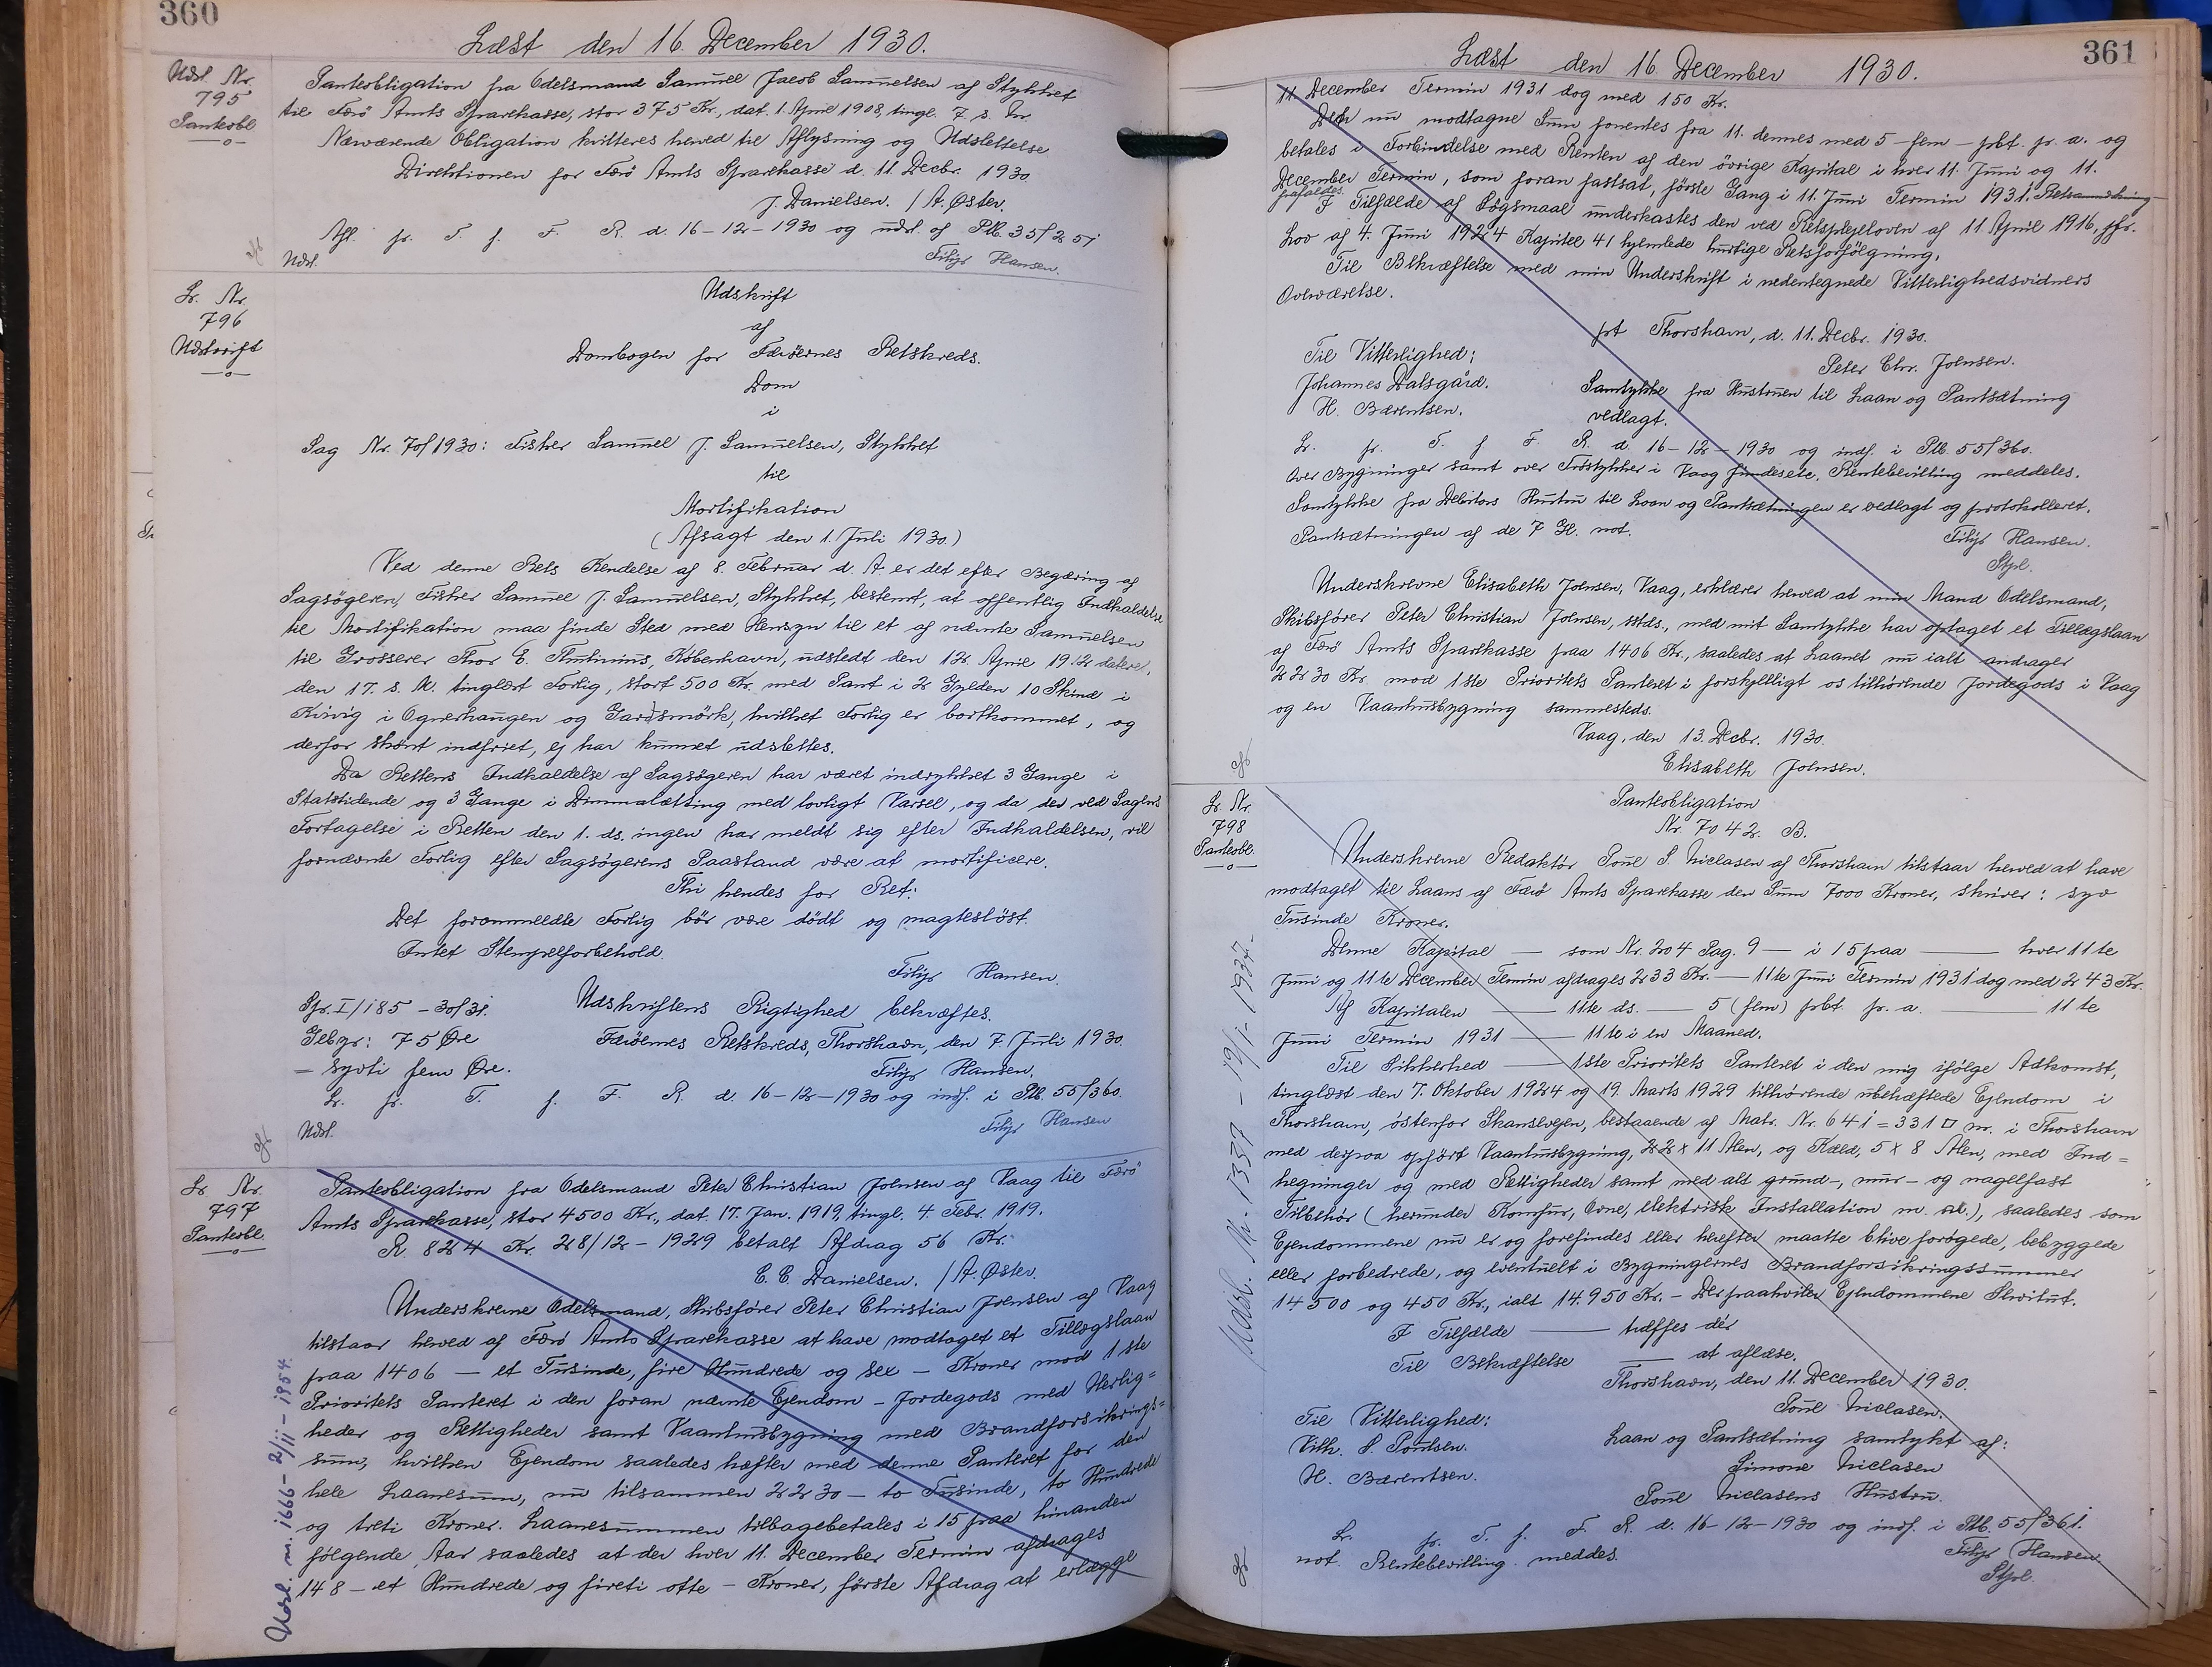 360
Læst den 16. December 1930.
Udsl. Nr.
795
Panteobl
Panteobligation fra Odelsmand Samuel Jacob Samuelsen af Stykket
til Færö Amts Sparekasse, stor 375 Kr., dat. 1. April 1908, tingl. 7. s. M.
Nærværende Obligation kvitteres herved til Aflysning og Udslettelse
Direktionen for Færö Amts Sparekasse d. 11. Decbr. 1930
J. Danielsen. / A. Øster.
Afl. pr. T. f. F. R. d. 16-12-1930 og udsl. af Ptb. 35/251
Udsl.
Filip Hansen.
Lr. Nr.
796
Udskrift
Udskrift
af
Dombogen for Færöernes Retskreds.
Dom
i
Sag Nr. 70/1930: Fisker Samuel J. Samuelsen, Stykket
til
Mortifikation
(Afsagt den 1. Juli 1930.)
Ved denne Rets Kendelse af 8. Februar d. A. er det efter Begæring af
Sagsögeren, Fisker Samuel J. Samuelsen, Stykket, bestemt, at offentlig Indkaldelse
til Mortifikation maa finde Sted med Hensyn til et af nævnte Samuelsen
til Grosserer Thor E. Tulinius, København, udstedt den 12. April 1912 dateret,
den 17. s. M. tinglæst Forlig, stort 500 Kr. med Pant i 2 Gylden 10 Skind i
Kvivig i Ognerhaugen og Gardsmörk, hvilket Forlig er bortkommet, og
derfor skönt indfriet, ej har kunnet udslettes.
Da Rettens Indkaldelse af Sagsögeren har været indrykket 3 Gange i
Statstidende og 3 Gange i Dimmalætting med lovligt Varsel, og da der ved Sagens
Foretagelse i Retten den 1. ds. ingen har meldt sig efter Indkaldelsen, vil
fornævnte Forlig efter Sagsögerens Paastand være at mortificere.
Thi kendes for Ret:
Det foranmeldte Forlig bör være dödt og magteslöst.
Intet Stempelforbehold.
Filip Hansen.
Spr. I/185 - 30/31.
Udskriftens Rigtighed bekræftes.
Gebyr: 75 Øre
Færöernes Retskreds, Thorshavn, den 7. Juli 1930.
— syvti fem Øre.
Filip Hansen.
Lr. pr. T. f. F. R. d. 16-12-1930 og indf. i Ptb. 55/360.
Udsl.
Filip Hansen
Lr. Nr.
797
Panteobl.
Panteobligation fra Odelsmand Peter Christian Joensen af Vaag til Færö
Amts Sparekasse, stor 4500 Kr., dat. 17. Jan. 1919, tingl. 4. Febr. 1919.
R. 824 Kr. 28/12-1929 betalt Afdrag 56 Kr.
C. C. Danielsen. / A. Øster.
Underskrevne Odelsmand, Skibsförer Peter Christian Joensen af Vaag
tilstaar herved af Færö Amts Sparekasse at have modtaget et Tillægslaan
paa 1406 — et Tusinde, fire Hundrede og sex — Kroner mod 1ste
Prioritets Panteret i den foran nævnte Ejendom — Jordegods med Herlig=
heder og Rettigheder samt Vaanhusbygning med Brandforsikrings=
sum, hvilken Ejendom saaledes hæfter med denne Panteret for den
hele Laanesum, nu tilsammen 2230 — to Tusinde, to Hundrede
og treti Kroner. Laanesummen tilbagebetales i 15 paa hinanden
følgende Aar saaledes at der hver 11. December Termin afdrages
148 — et Hundrede og fireti otte — Kroner, förste Afdrag at erlægge
Udsl. nr. 1666 - 2/11 - 1954.
361
Læst den 16 December 1930.
11. December Termin 1931 dog med 150 Kr.
Den nu modtagne Sum forrentes fra 11. dennes med 5 — fem — pCt. pr. a. og
betales i Forbindelse med Renten af den övrige Kapital i hver 11. Juni og 11.
December Termin, som foran fastsat, förste Gang i 11. Juni Termin 1931.
I Tilfælde af Sögsmaal underkastes den ved Retsplejeloven af 11 April 1916, jfr.
Lov af 4. Juni 1924 Kapitel 41 hjemlede hurtige Retsforfölgning.
Til Bekræftelse med min Underskrift i nedentegnede Vitterlighedsvidners
Overværelse.
pt Thorshavn, d. 11. Decbr. 1930.
Til Vitterlighed:
Peter Chr. Joensen.
Johannes Dalsgård.
Samtykke fra Hustruen til Laan og Pantsætning
H. Bærentsen.
vedlagt.
Lr. pr. T. f. F. R. d. 16-12-1930 og indf. i Ptb. 55/360.
Over Bygninger samt over Tröstykker i Vaag findes etc. Rentebevilling meddeles.
Samtykke fra Debitors Hustru til Laan og Pantsætningen er vedlagt og protokolleret.
Pantsætningen af de 7 Gl. not.
Filip Hansen.
Stpl.
Underskrevne Elisabeth Joensen, Vaag, erklærer herved at min Mand Odelsmand,
Skibsförer Peter Christian Joensen, sstds., med mit Samtykke har optaget et Tillægslaan
af Færö Amts Sparekasse paa 1406 Kr., saaledes at Laanet nu ialt andrager
2230 Kr. mod 1ste Prioritets Panteret i forskjelligt os tilhörende Jordegods i Vaag
og en Vaanhusbygning sammesteds.
Vaag, den 13. Decbr. 1930.
Elisabeth Joensen.
Lr. Nr.
798
Panteobl.
Panteobligation
Nr. 7042. B.
Underskrevne Redaktör Poul S. Niclasen af Thorshavn tilstaar herved at have
modtaget til Laans af Færö Amts Sparekasse den Sum 7000 Kroner, skriver: syv
Tusinde Kroner.
Denne Kapital — som Nr. 204 Pag. 9 — i 15 paa — hver 11te
Juni og 11te December Termin afdrages 233 Kr. — 11te Juni Termin 1931 dog med 243 Kr.
Af Kapitalen — 11te ds. — 5 (fem) pCt. pr. a. — 11te
Juni Termin 1931 — 11te i en Maaned.
Til Sikkerhed — 1ste Prioritets Panteret i den mig ifölge Adkomst,
tinglæst den 7. Oktober 1924 og 19. Marts 1929 tilhörende ubehæftede Ejendom i
Thorshavn, östenfor Skansevejen, bestaaende af Matr. Nr. 641 = 331 □ m. i Thorshavn
med derpaa opfört Vaanhusbygning, 22 x 11 Alen, og Kæld, 5 x 8 Alen, med Ind=
hegninger og med Rettigheder samt med alt grund-, mur- og nagelfast
Tilbehör (herunder Komfur, Ovne, elektrisk Installation m. m.), saaledes som
Ejendommene nu er og forefindes eller herefter maatte blive forögede, bebyggede
eller forbedrede, og eventuelt i Bygningernes Brandforsikringssummer
14500 og 450 Kr., ialt 14.950 Kr. — Der paahviler Ejendommene Servitut.
I Tilfælde — træffes dér
Til Bekræftelse — at aflæse.
Thorshavn, den 11. December 1930.
Poul Niclasen.
Til Vitterlighed:
Laan og Pantsætning samtykt af:
Vilh. S. Poulsen.
Simone Niclasen
H. Bærentsen.
Poul Niclasens Hustru.
Lr. pr. T. f. F. R. d. 16-12-1930 og indf. i Ptb. 55/361.
not. Rentebevilling meddes.
Filip Hansen
Stpl.
Udsl. Nr. 1337 - 19/1-1937.